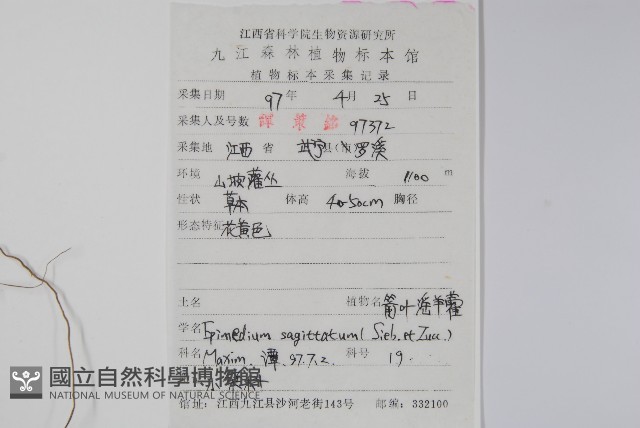 江西省科学院生物资源研究所
九江森林植物标本馆
植物标本采集记录
采集日期 97年 4月 25日
采集人及号数 譚策銘 97372
采集地 江西省 武宁县(市)罗溪
环境 山坡灌丛 海拔 1100 m
性状 草本 体高 40-50cm 胸径
形态特征 花黄色
土名 植物名 箭叶淫羊藿
学名 Epimedium sagittatum (Sieb. et Zucc.)
科名 Maxim. 譚 97.7.2. 科号 19.
小檗科
馆址:江西九江县沙河老街143号 邮编:332100
國立自然科學博物館
NATIONAL MUSEUM OF NATURAL SCIENCE